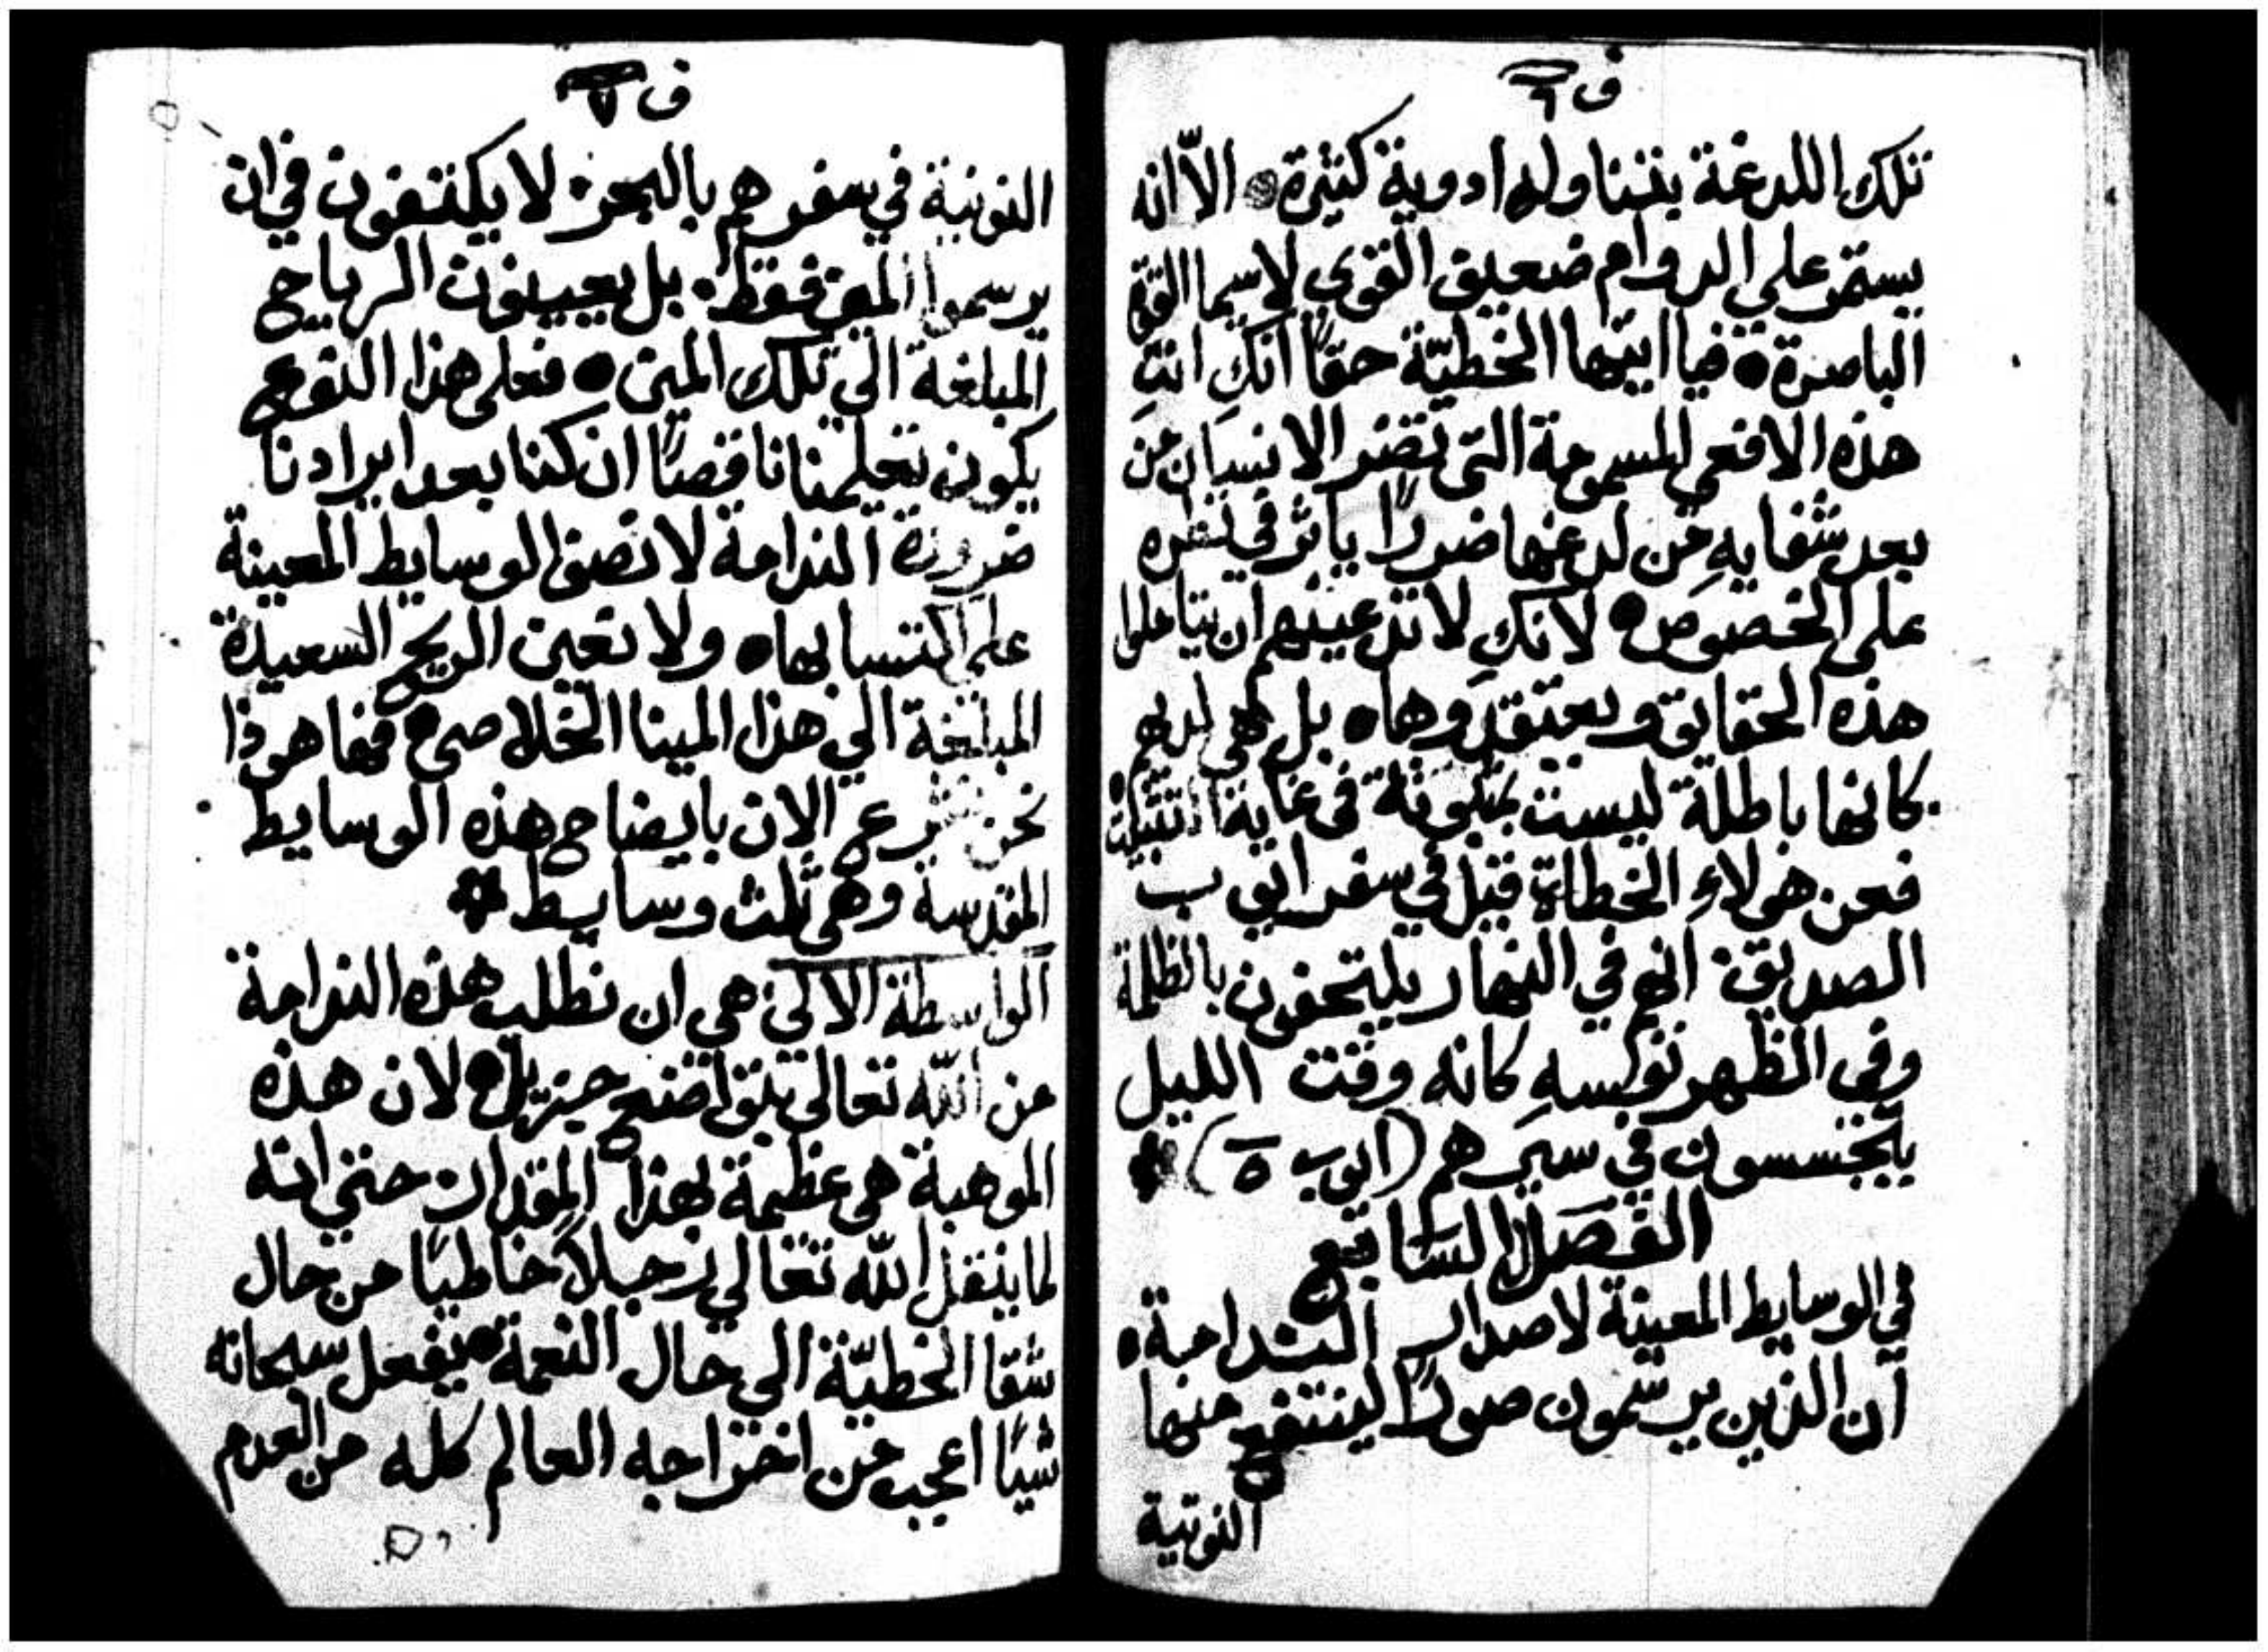 ف ٦
تلك اللدغة بتناوله ادوية كثيرة الاّ انه
يستمر على الدوام ضعيف القوى لاسيما القوة
الباصرة فيا ايتها الخطيّة حقًا انكِ انتِ
هذه الافعى المسمومة التى تضر الانسان من
بعد شفايهِ من لدغها ضررًا ياثر في نظره
على الخصوص لانكِ لا تدعينهم ان يتاملوا
هذه الحقايق ويعتقدوها بل هي لديهم
كانها باطلة ليست بمثبوتة فى غاية التثبيت
فعن هولاءِ الخطاة قيل في سفر ايوب
الصديق انهم في النهار يلتحفون بالظلمة
وفى الظهر نفسهِ كانه وقت الليل
يتجسسون في سيرهم (ايوب ٥)
الفصل السابع
في الوسايط المعينة لاصدار الندامة
ان الذين يرسمون صورًا لينتفع منها
النوتية
ف ٧
النوتية في سفرهم بالبحر لا يكتفون في ان
يرسموا المين فقط بل يعيينون الرياح
المبلغة الي تلك المين فعلى هذا النوع
يكون تعليمنا ناقصًا ان كنا بعد ايرادنا
ضرورة الندامة لا نصف الوسايط المعينة
على اكتسابها ولا نعين الريح السعيدة
المبلغة الي هذا المينا الخلاصى فها هوذا
نحن نشرع الان بايضاح هذه الوسايط
المقدسة وهى ثلث وسايط
الواسطة الاالي هي ان نطلب هذه الندامة
من الله تعالى بتواضع جزيل لان هذه
الموهبة هى عظيمة بهذا المقدار حتي انه
لما ينقل الله تعالي رجلاً خاطيًا من حال
شقا الخطيّة الي حال النعمة يفعل سبحانه
شيًا اعجب من اختراجه العالم كله من العدم